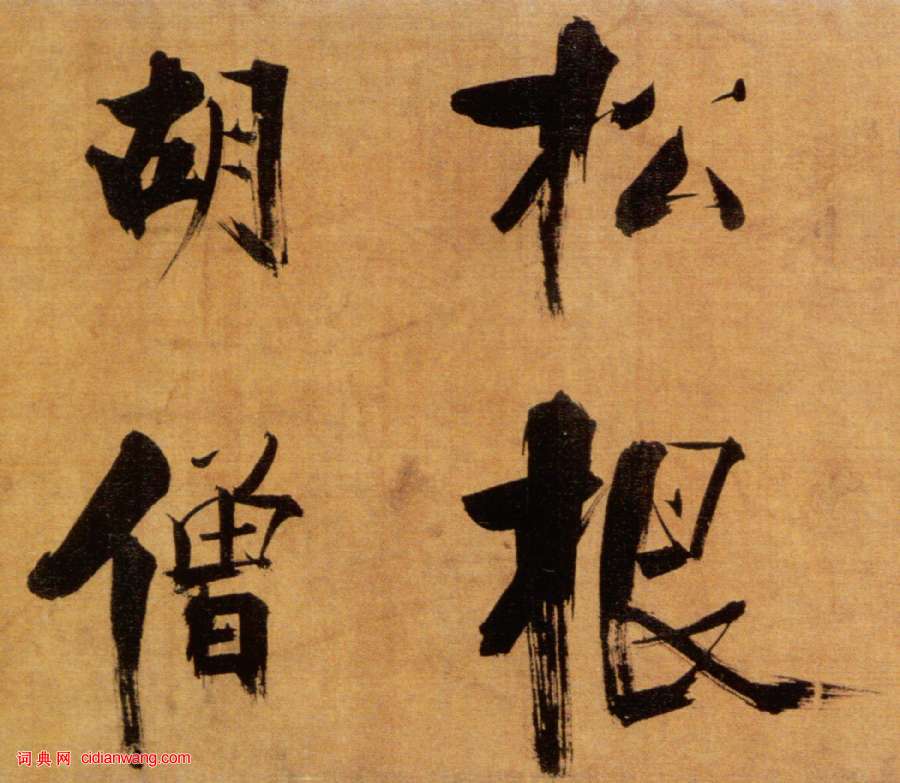 松根
胡僧
词典网 cidianwang.com